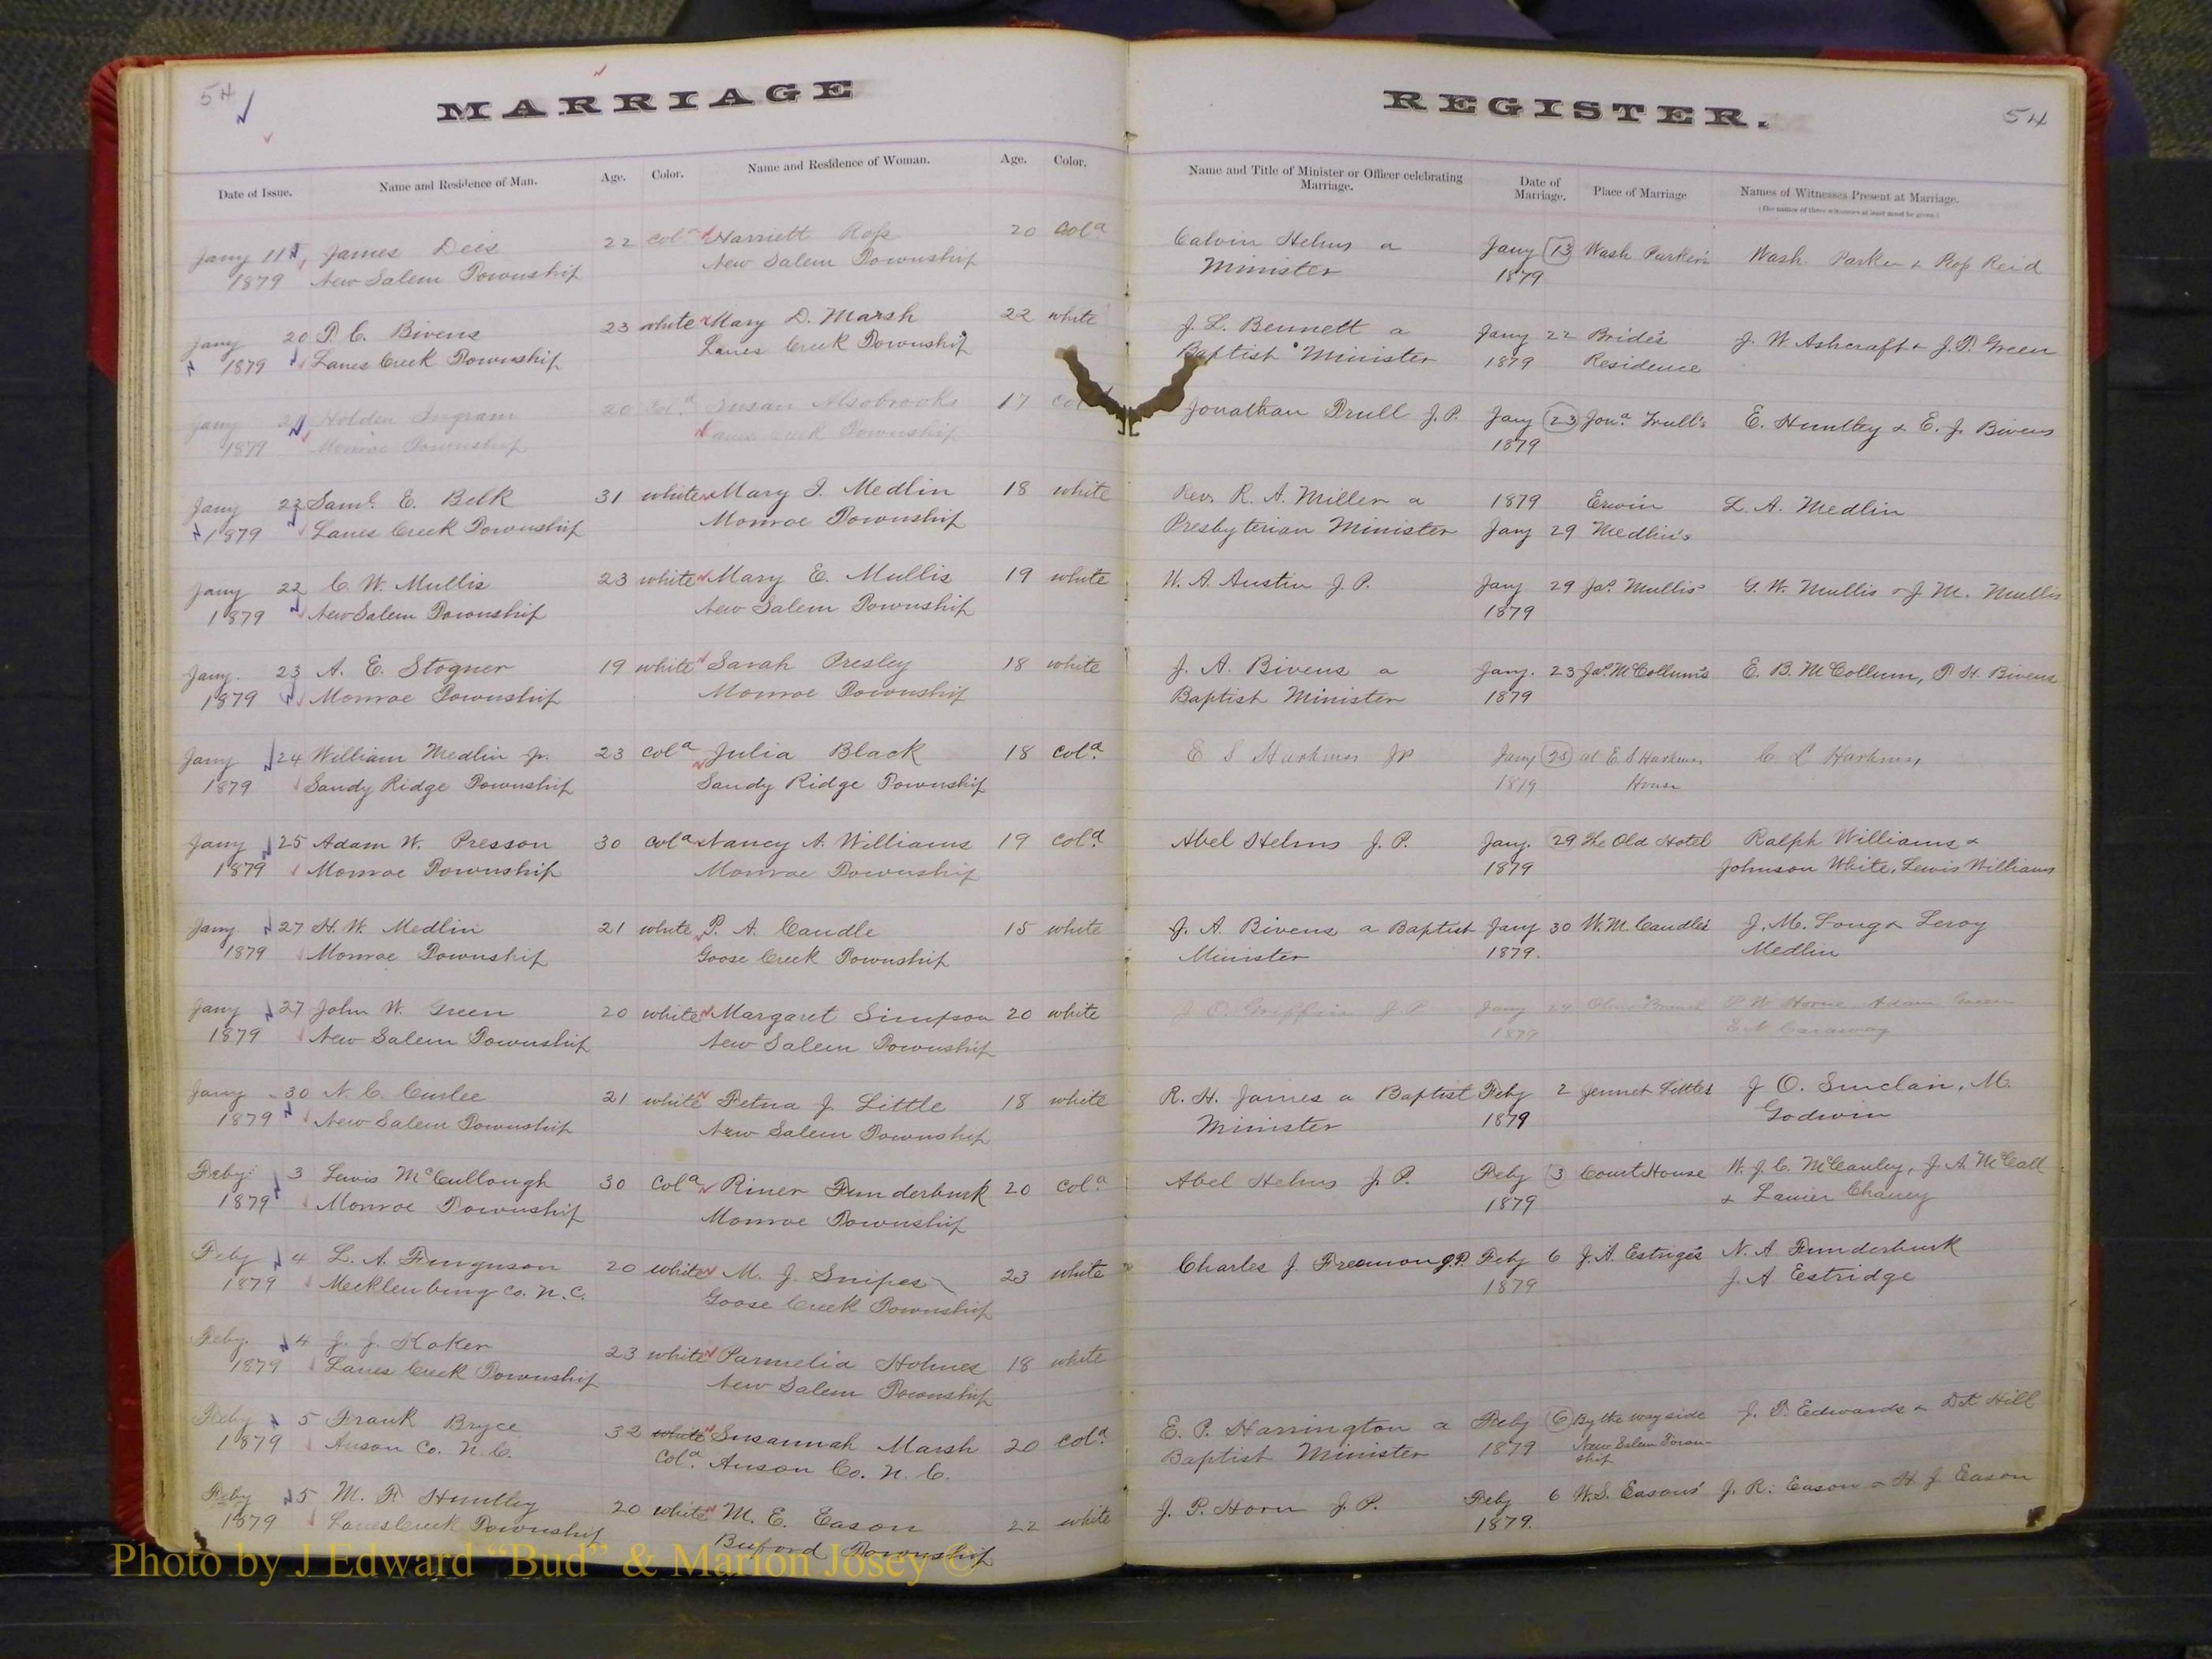 54
MARRIAGE
REGISTER.
54
Date of Issue. Name and Residence of Man. Age. Color. Name and Residence of Woman. Age. Color. Name and Title of Minister or Officer celebrating Marriage. Date of Marriage. Place of Marriage Names of Witnesses Present at Marriage.
(The names of three witnesses at least must be given.)
Jany 11 James Dees 22 cold Harriett Ross 20 cold Calvin Helms a Jany 13 Wash Parker's Wash. Parker & Ross Reid
1879 New Salem Township New Salem Township Minister 1879
Jany 20 P. C. Bivens 23 white Mary D. Marsh 22 white J. L. Bennett a Jany 22 Bride's J. W Ashcraft & J. P. Green
1879 Lanes Creek Township Lanes Creek Township Baptist Minister 1879 Residence
Jany Holden Ingram 20 Cold Susan Alsobrooks 17 col Jonathan Trull J.P. Jany 23 Jona Trull's E. Huntley & E. J. Bivens
1879 Monroe Township Lanes Creek Township 1879
Jany 22 Saml. E. Belk 31 white Mary J. Medlin 18 white Rev. R. A. Miller a 1879 Erwin L. A. Medlin
1879 Lanes Creek Township Monroe Township Presbyterian Minister Jany 29 Medlin's
Jany 22 C. W. Mullis 23 white Mary E. Mullis 19 white W. A. Austin J. P. Jany 29 Jas. Mullis' G. W. Mullis & J. M. Mullis
1879 New Salem Township New Salem Township 1879
Jany. 23 A. E. Stogner 19 white Sarah Presley 18 white J. A. Bivens a Jany. 23 Jas. McCollum's E. B. McCollum, P. H. Bivens
1879 Monroe Township Monroe Township Baptist Minister 1879
Jany 24 William Medlin Jr. 23 cold Julia Black 18 cold. E S Harkness JP Jany 25 at E S Harkness C L Harkness
1879 Sandy Ridge Township Sandy Ridge Township 1879 House
Jany 25 Adam W. Presson 30 cold Nancy A. Williams 19 cold. Abel Helms J. P. Jany. 29 The Old Hotel Ralph Williams &
1879 Monroe Township Monroe Township 1879 Johnson White, Lewis Williams
Jany. 27 H. W. Medlin 21 white P. A. Caudle 15 white J. A. Bivens a Baptist Jany 30 W. M. Caudle's J. M. Long & Leroy
1879 Monroe Township Goose Creek Township Minister 1879. Medlin
Jany 27 John W. Green 20 white Margaret Simpson 20 white J O. Griffin J. P. Jany 29 Olive Branch P. W Horne Adam
1879 New Salem Township New Salem Township 1879 E A Caraway
Jany 30 N. C. Curlee 21 white Fetna J. Little 18 white R. H. James a Baptist Feby 2 Jennet Little's J O. Sinclair, M.
1879 New Salem Township New Salem Township Minister 1879 Godwin
Feby 3 Lewis McCullough 30 Cold Riner Funderburk 20 Cold. Abel Helms J. P. Feby 3 Court House W. J. C. McCauley, J. A. McCall
1879 Monroe Township Monroe Township 1879 & Lanier Chaney
Feby 4 L. A. Furguson 20 white M. J. Snipes 23 white Charles J. Freemon J.P. Feby 6 J. A. Estrige's N. A Funderburk
1879 Mecklenburg Co. N. C. Goose Creek Township 1879 J. A Estridge
Feby. 4 J. J. Koker 23 white Parmelia Holmes 18 white
1879 Lanes Creek Township New Salem Township
Feby 5 Frank Bryce 32 white Susannah Marsh 20 cold. E. P. Harrington a Feby 6 By the way side J. P. Edwards & Hill
1879 Anson Co. N. C. Cold. Anson Co. N. C. Baptist Minister 1879 New Salem Town-
ship
Feby 5 M. F Huntley 20 white M. E. Eason 22 white J. P. Horn J. P. Feby 6 W. S. Easons' J. R. Eason & H. J. Eason
1879 Lanes Creek Township Buford Township 1879.
Photo by J Edward “Bud” & Marion Josey ©